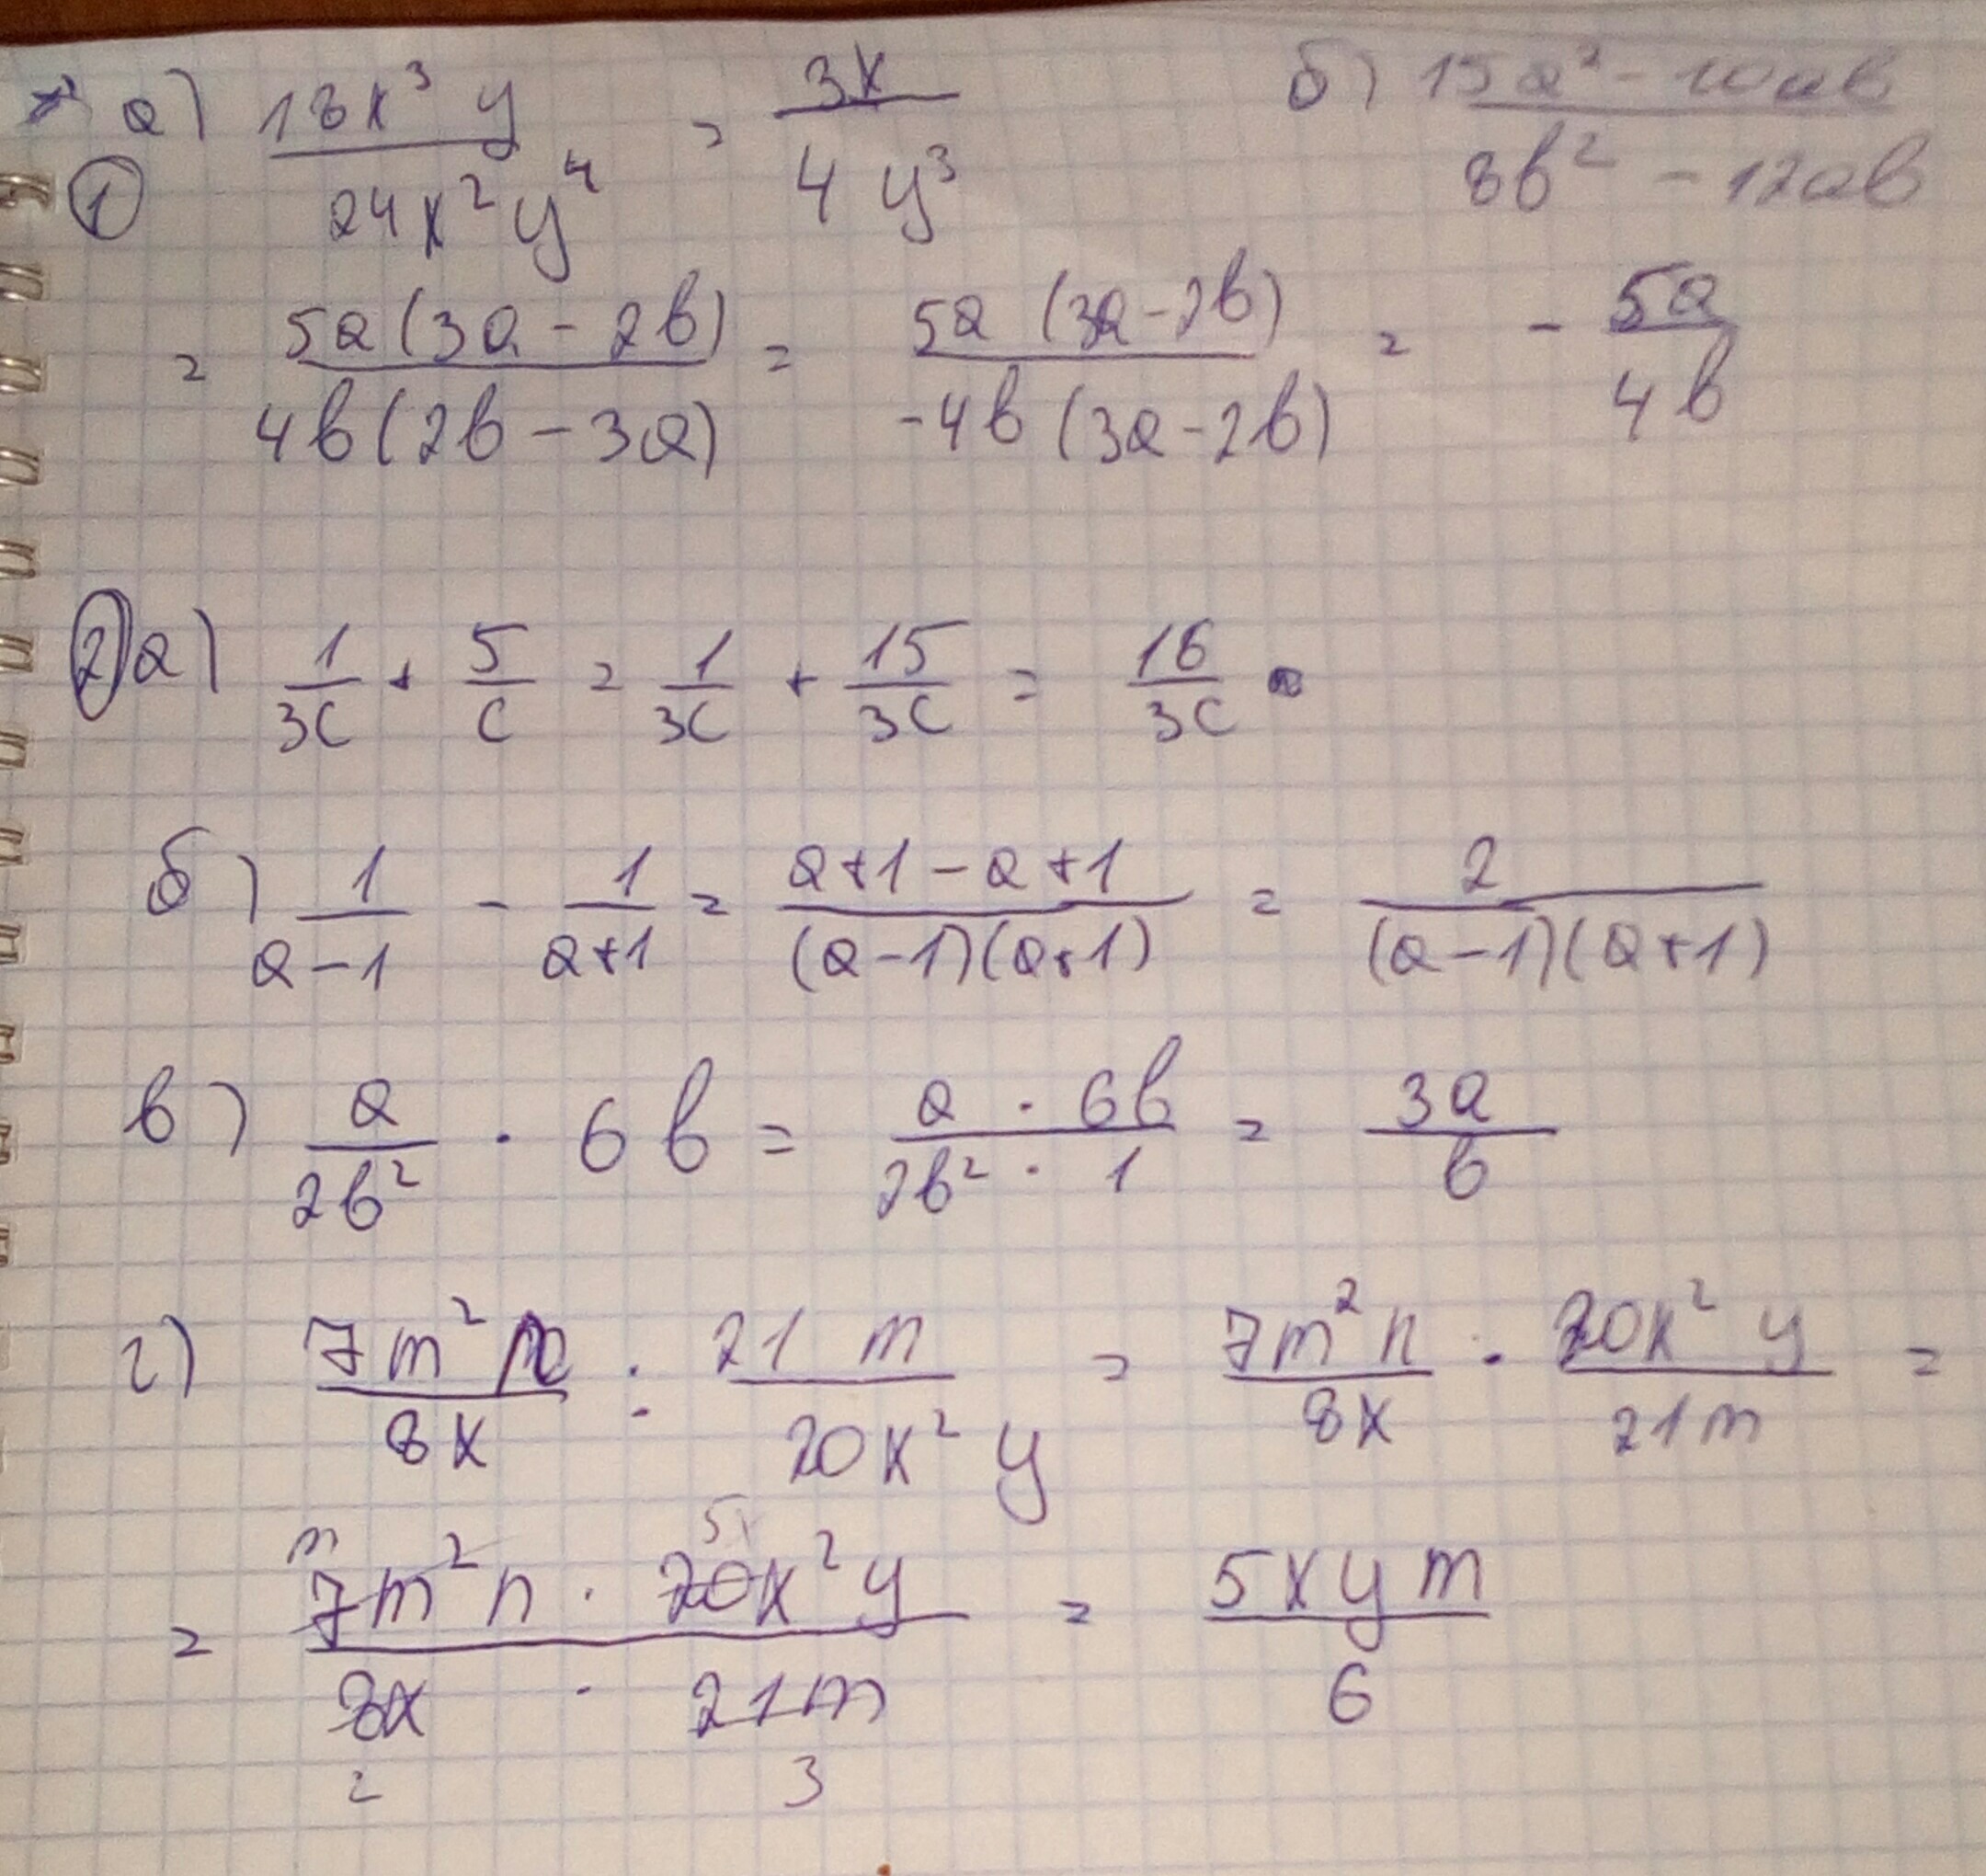 ① а) 18x³y / 24x²y⁴ = 3x / 4y³ б) 15a² - 10ab / 8b² - 12ab
= 5a(3a - 2b) / 4b(2b - 3a) = 5a(3a - 2b) / -4b(3a - 2b) = - 5a / 4b
② а) 1 / 3c + 5 / c = 1 / 3c + 15 / 3c = 16 / 3c
б) 1 / a - 1 - 1 / a + 1 = a + 1 - a + 1 / (a - 1)(a + 1) = 2 / (a - 1)(a + 1)
в) a / 2b² · 6b = a · 6b / 2b² · 1 = 3a / b
г) 7m²n / 8x : 21m / 20x²y = 7m²n / 8x · 20x²y / 21m =
m 5x
= 7m²n · 20x²y / 8x · 21m = 5xym / 6
2 3